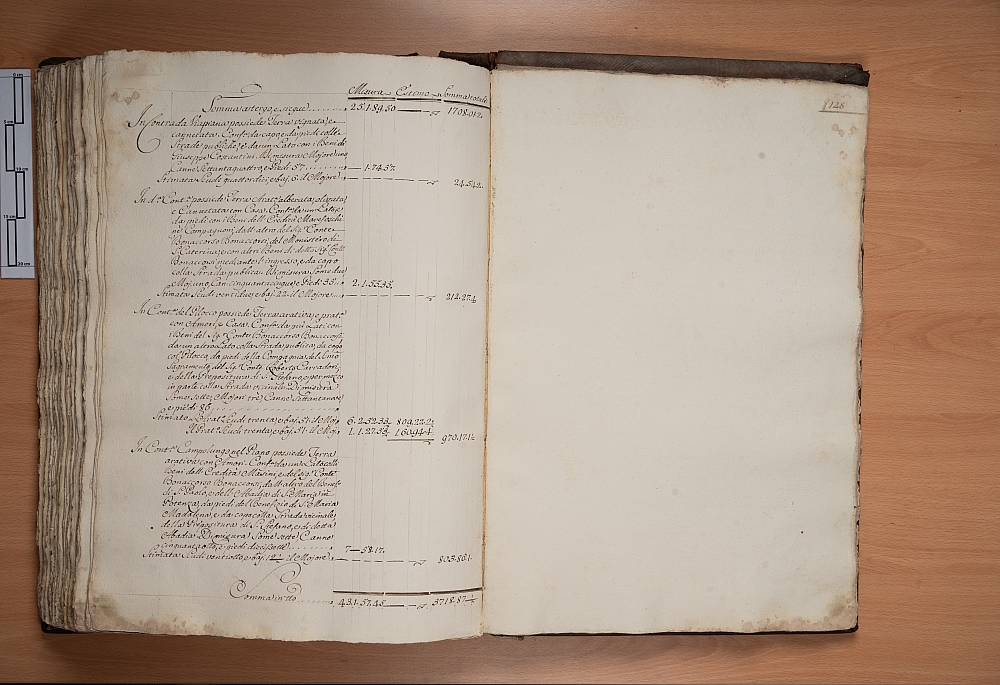 Misura Estimo Somma totale
Somma a tergo, e siegue 25.1.84.50 1708.01
In Contrada Viapiana possiede Terra vignata, e
cannetata. Conf. da capo, e da piedi colle
Strade publiche, e da un Lato con i Beni di
Giuseppe Costantini. Di misura Mojore una
Canne Settantaquattro, e Piedi 57 1.74.57
Stimata Scudi quattordici, e baj. 6. il Mojore 24.54
In d. Cont. possiede Terra Arat. alberata, olivata
e Cannetata con Casa. Conf. da un Lato, e
da piedi con i Beni dell' Eredità Marefoschi
ni Compagnoni, dall' altro del Sig. Conte
Bonaccorso Bonaccorsi, del Monistero di
S. Caterina, e con altri Beni di detto Sig. Conte
Bonaccorsi mediante l'ingresso, e da capo
colla Strada publica. Di misura Some due
Moj. uno, Can. cinquantacinque, e Piedi 33 2.1.55.33
Stimata Scudi ventidue, e baj. 22. il Mojore 212.27
In Cont. del Pilocco possiede Terra arativa, e prat.
con Amori, e Casa. Conf. da più Lati con
i Beni del Sig. Conte Bonaccorso Bonaccorsi,
da un altro Lato colla Strada publica, da capo
col Pilocco, da piedi della Compagnia del SSmo
Sagramento, del Sig. Conte Roberto Carradori,
e della Prepositura di S. Stefano, e per mezzo
in parte colla Strada vicinale. Di misura
Some sette, Mojori tre, Canne Settantanove,
e piedi 86
Stimato l'Arat. Scudi trenta, e baj. 51. il Moj. 6.2.52.33 809.22.2
Il Prat. Scudi trenta, e baj. 51. il Moj. 1.1.27.53 160.94. 970.17.
In Cont. Campolungo, nel Piano possiede Terra
arativa con Amori. Conf. da un Lato colli
Beni dell' Eredità Masini, e del Sig. Conte
Bonaccorso Bonaccorsi, dall' altro del Benef.
di S. Paolo, e dell' Abadia di S. Maria in
Potenza, da piedi del Beneficio di S. Maria
Madalena, e da capo colla Strada vicinale,
della Prepositura di S. Stefano, e di detta
Abadia. Di misura Some sette Canne
cinquantotto, e piedi diecisette 7 58.17.
Stimata Scudi ventotto, e baj. 12 il Mojore 803.86
Somma in tto 43.1.57.45 3718.87
128